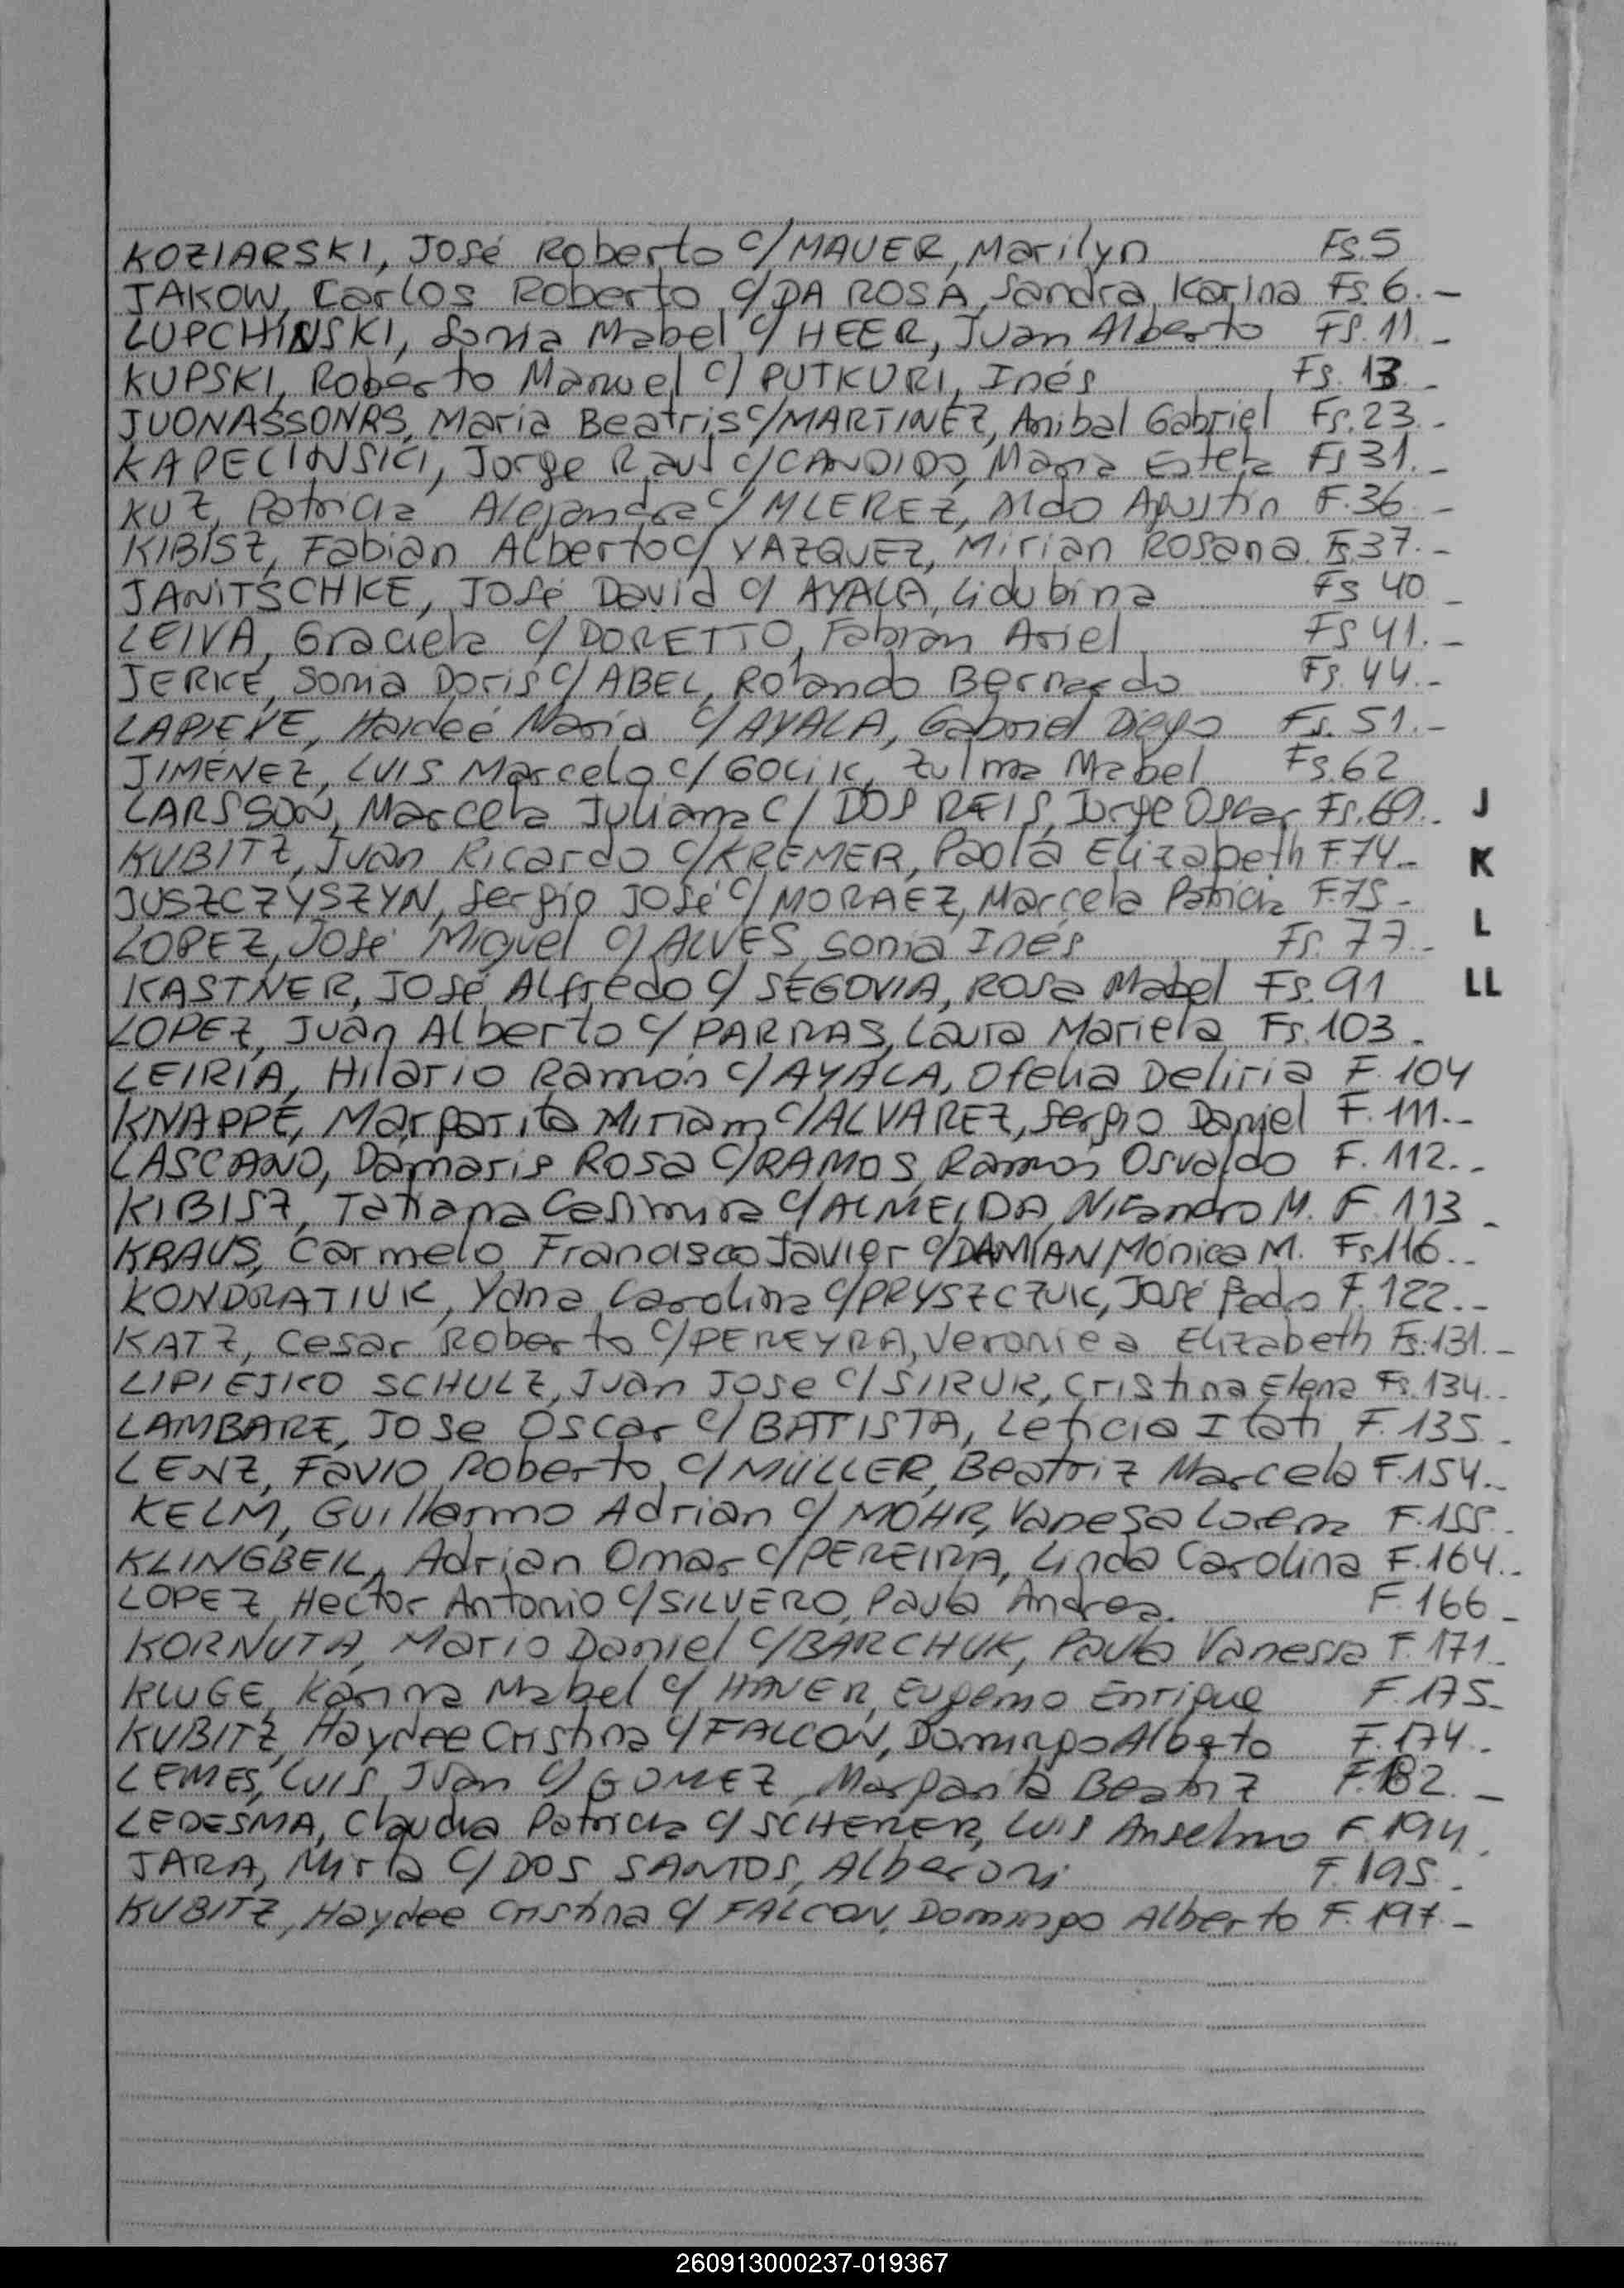 KOZIARSKI, José Roberto c/MAUER, Marilyn Fs.5
JAKOW, Carlos Roberto c/DA ROSA, Sandra Karina Fs.6.-
LUPCHINSKI, Sonia Mabel c/ HEER, Juan Alberto Fs.11.-
KUPSKI, Roberto Manuel c/ PUTKURI, Inés Fs.13.-
JUONASSONRS, Maria Beatris c/MARTINEZ, Anibal Gabriel Fs.23.-
KAPECINSKI, Jorge Raul c/CANDIDO, Maria Estela Fs 31.-
KUZ, Patricia Alejandra c/ MLEREZ, Aldo Agustin F.36.-
KIBISZ, Fabian Alberto c/ VAZQUEZ, Mirian Rosana Fs.37.-
JANITSCHKE, José David c/ AYALA, Lidubina Fs 40.-
LEIVA, Graciela c/ DORETTO, Fabian Ariel Fs 41.-
JERKE, Sonia Doris c/ ABEL, Rolando Bernardo Fs.44.-
LAPIEVE, Haideé Maria c/ AYALA, Gabriel Diego Fs.51.-
JIMENEZ, Luis Marcelo c/ GOLIK, Zulma Mabel Fs.62
LARSSON, Marcela Juliana c/ DOS REIS, Jorge Oscar Fs.69.- J
KUBITZ, Juan Ricardo c/KREMER, Paola Elizabeth F.74.- K
JUSZCZYSZYN, Sergio José c/ MORAEZ, Marcela Patricia F.75.-
LOPEZ, José Miguel c/ ALVES, Sonia Inés Fs.77.- L
KASTNER, José Alfredo c/ SEGOVIA, Rosa Mabel Fs.91 LL
LOPEZ, Juan Alberto c/ PARRAS, Laura Mariela Fs.103.
LEIRIA, Hilario Ramón c/AYALA, Ofelia Deliria F.104
KNAPPE, Margarita Miriam c/ALVAREZ, Sergio Daniel F.111.-
LASCANO, Damaris Rosa c/RAMOS, Ramón Osvaldo F.112.-
KIBISZ, Tatiana Casimira c/ALMEIDA, Nicandro M. F.113.-
KRAUS, Carmelo Francisco Javier c/DAMIAN, Mónica M. Fs.116.-
KONDRATIUK, Yana Carolina c/PRYSZCZUK, José Pedro F.122.-
KATZ, Cesar Roberto c/PEREYRA, Veronica Elizabeth Fs.131.-
LIPIEJKO SCHULZ, Juan Jose c/SIRUK, Cristina Elena Fs.134.-
LAMBARE, Jose Oscar c/ BATISTA, Leticia Itati F.135.-
LENZ, Favio Roberto c/ MÜLLER, Beatriz Marcela F.154.-
KELM, Guillermo Adrian c/ MOHR, Vanesa Lorena F.155.-
KLINGBEIL, Adrian Omar c/PEREIRA, Linda Carolina F.164.-
LOPEZ, Hector Antonio c/SILVERO, Paula Andrea. F.166.-
KORNUTA, Mario Daniel c/BARCHUK, Paula Vanessa F.171.-
KLUGE, Karina Mabel c/ HAVER, Eugenio Enrique F.175.-
KUBITZ, Haydee Cristina c/FALCON, Domingo Alberto F.174.-
LEMES, Luis Ivan c/ GOMEZ, Margarita Beatriz F.182.-
LEDESMA, Claudia Patricia c/ SCHERER, Luis Anselmo F.194.
JARA, Mirta c/ DOS SANTOS, Alberoni F.195.-
KUBITZ, Haydee Cristina c/ FALCON, Domingo Alberto F.197.-
260913000237-019367